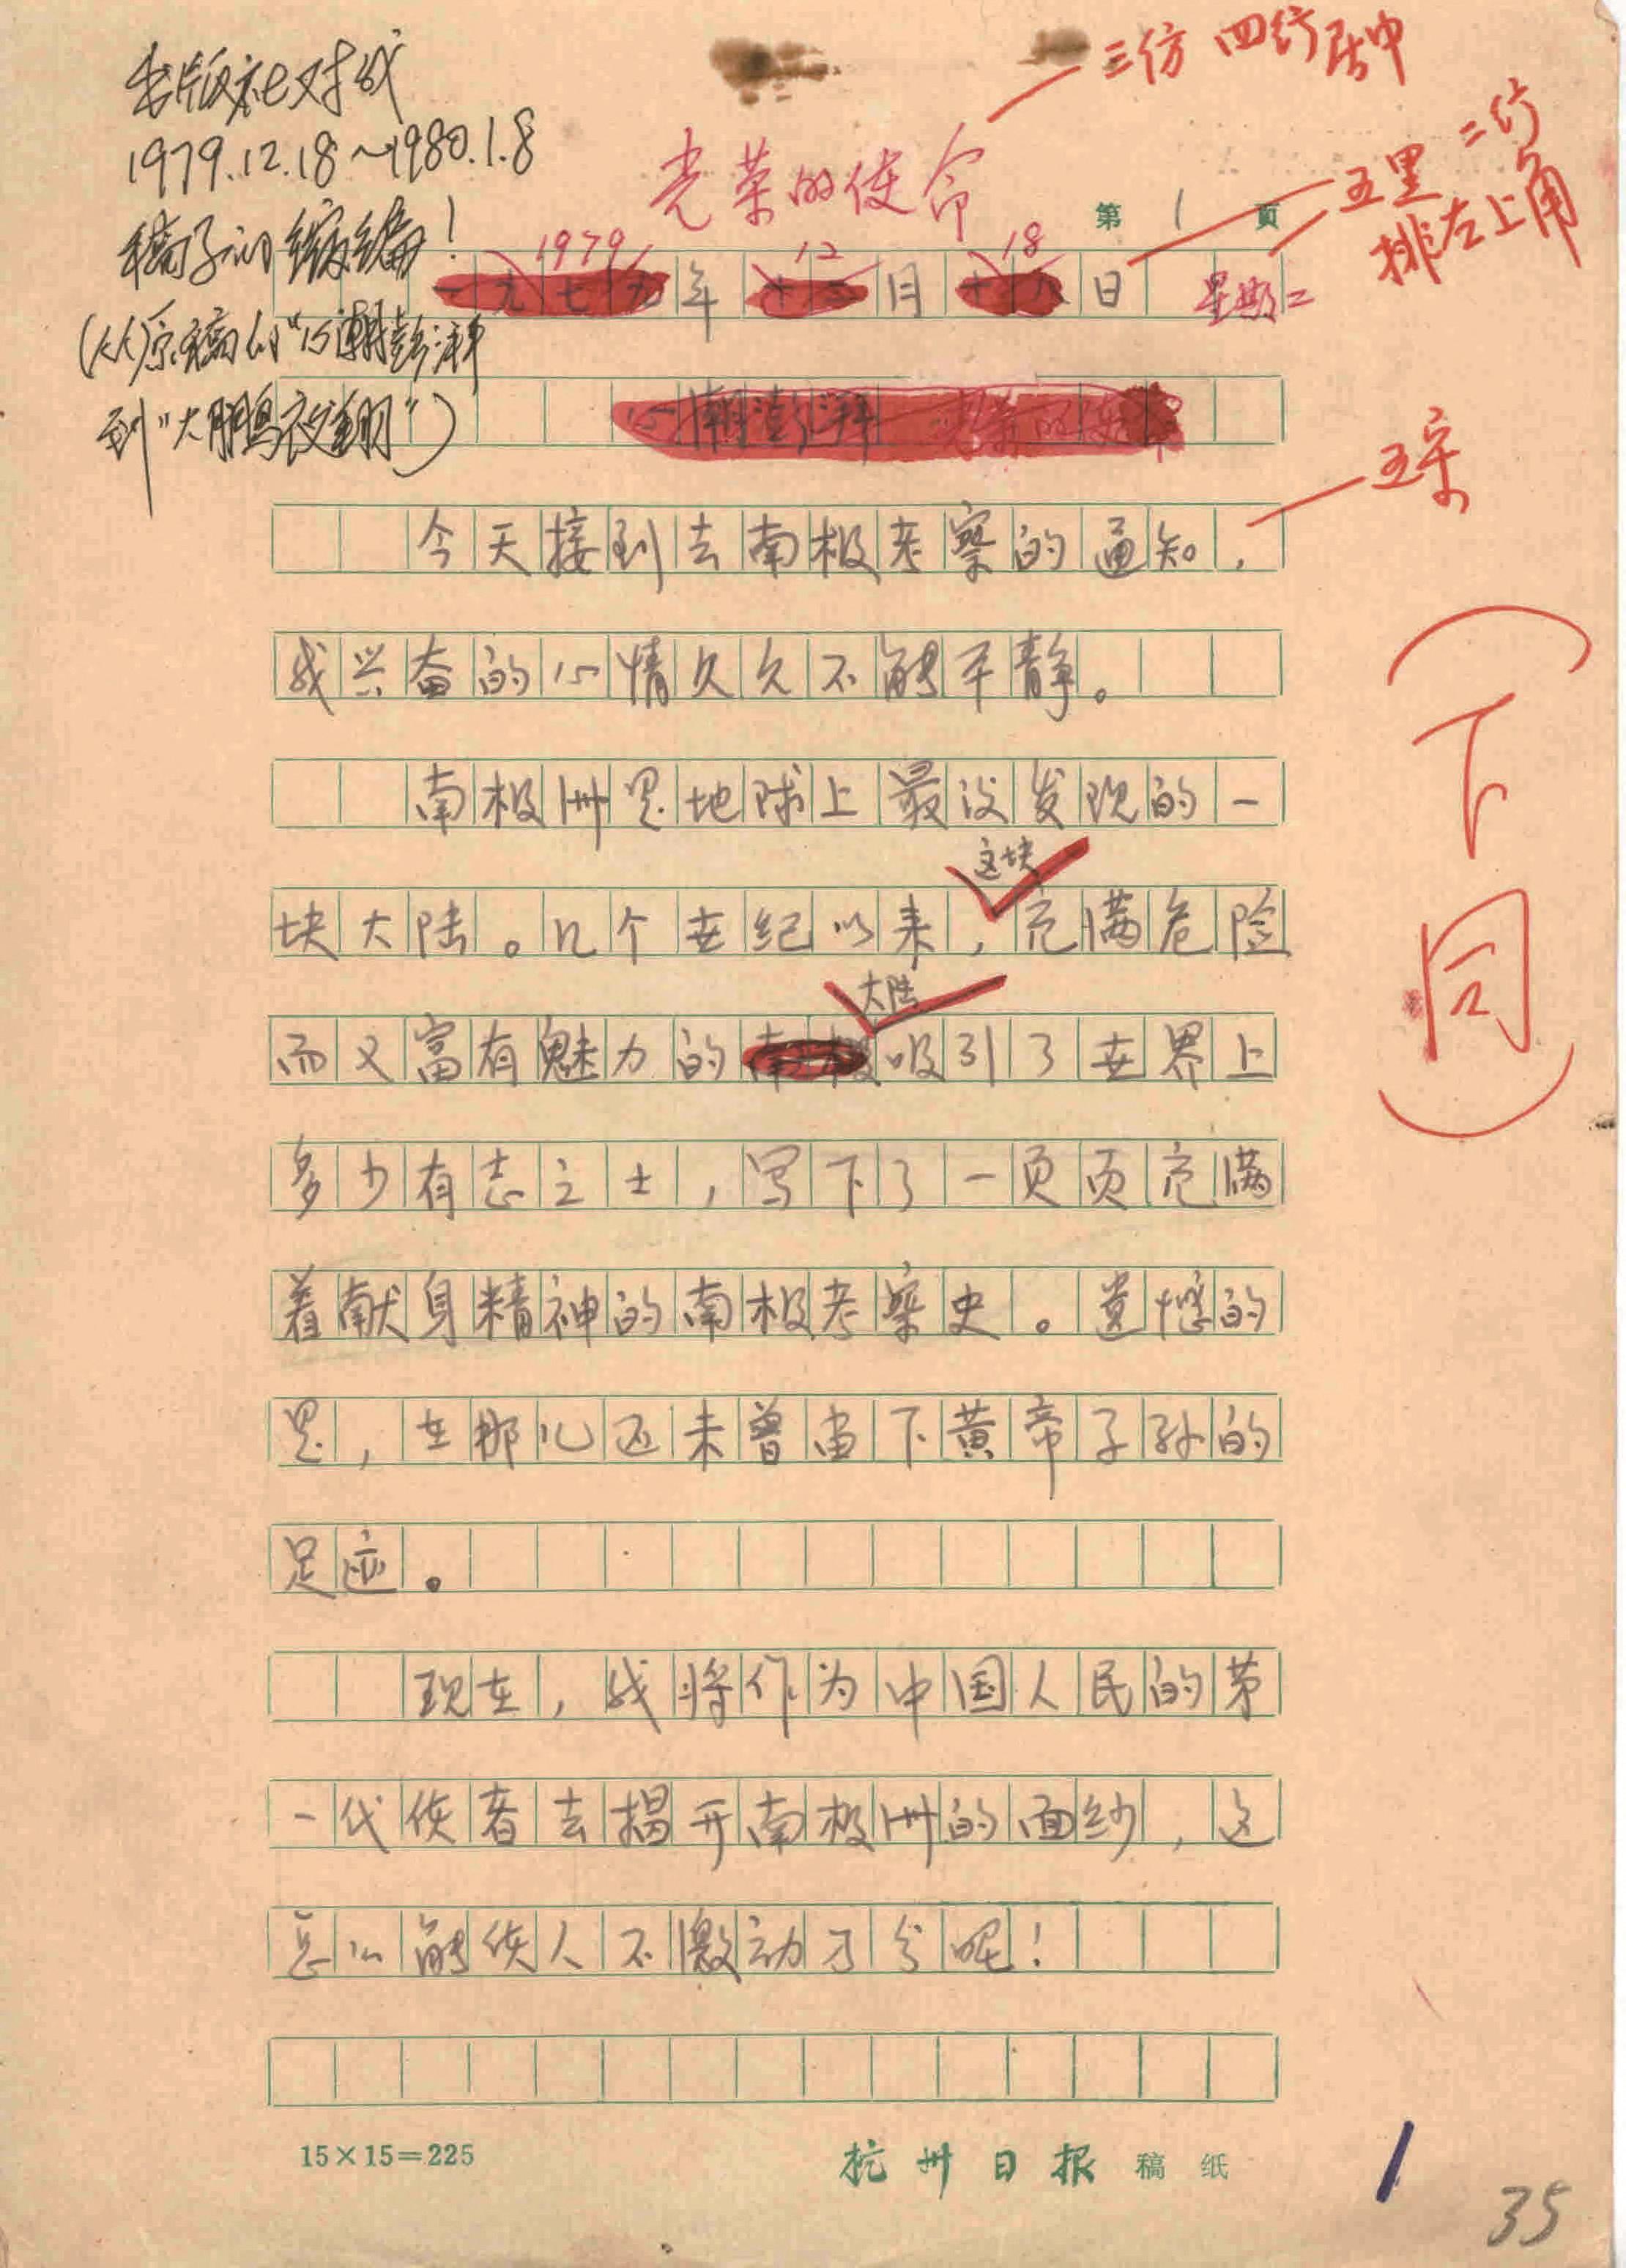 出版社对我
1979.12.18～1980.1.8
稿子的缩编！
(从原稿的“心潮澎湃
到“大鹏夜翔”)
三仿 四行居中
光荣的使命
第 1 页
五黑 二行
排左上角
1979 12 18
一九七九年十二月十八日 星期二
心潮澎湃 光荣的使命
五宋
今天接到去南极考察的通知，
我兴奋的心情久久不能平静。
(下同)
南极洲是地球上最没发现的一
这块
块大陆。几个世纪以来，充满危险
大陆
而又富有魅力的南极吸引了世界上
多少有志之士，写下了一页页充满
着献身精神的南极考察史。遗憾的
是，在那儿还未曾留下黄帝子孙的
足迹。
现在，我将作为中国人民的第
一代使者去揭开南极洲的面纱，这
怎么能使人不激动万分呢！
15×15=225
杭州日报 稿纸
1
35